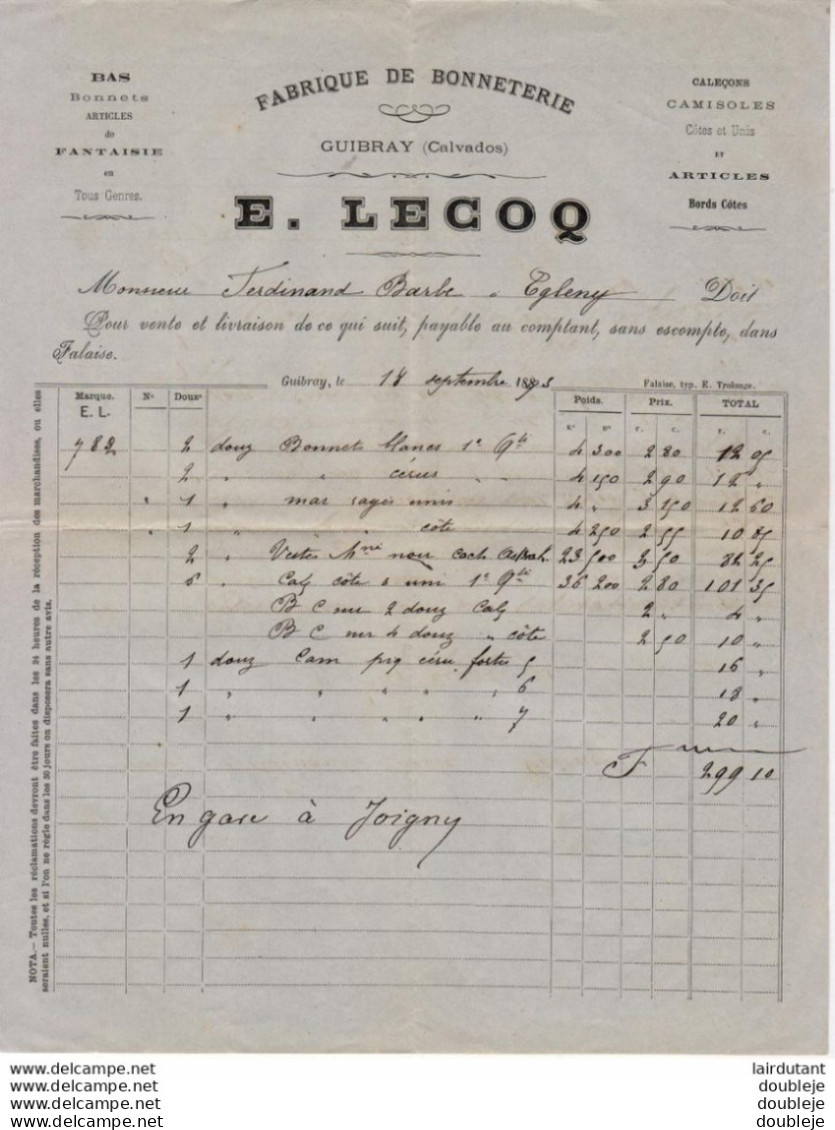 BAS
Bonnets
ARTICLES
de
FANTAISIE
en
Tous Genres.
FABRIQUE DE BONNETERIE
GUIBRAY (Calvados)
E. LECOQ
CALEÇONS
CAMISOLES
Côtes et Unis
ET
ARTICLES
Bords Côtes
Monsieur Ferdinand Barbe à Egleny Doit
Pour vente et livraison de ce qui suit, payable au comptant, sans escompte, dans
Falaise.
Guibray, le 18 septembre 1893
Falaise, typ. E. Trolonge.
Marque. No Douzes Poids. Prix. TOTAL
E. L. Ks Gs F. C. F. C.
782 2 douz Bonnets blancs 1e Qté 4 300 2 80 12 05
2 " " écrus " " 4 150 2 90 12 "
" 1 " unis 4 " 3 150 12 60
" 1 " " " côte 4 250 2 55 10 85
2 " Vestes noir cach 23 500 3 50 82 25
6 " Calç côte & uni 1e Qté 36 200 2 80 101 35
B C 2 douz Calç 2 " 4 "
B C 4 douz " côte 2 50 10 "
1 douz Cam écru fortes 5 16 "
1 " " " " " 6 18 "
1 " " " " " 7 20 "
F 299 10
En gare à Joigny
NOTA.— Toutes les réclamations devront être faites dans les 24 heures de la réception des marchandises, ou elles
seraient nulles, et si l'on ne règle dans les 30 jours on disposera sans autre avis.
www.delcampe.net
www.delcampe.net
www.delcampe.net
www.delcampe.net
lairdutant
doubleje
doubleje
doubleje